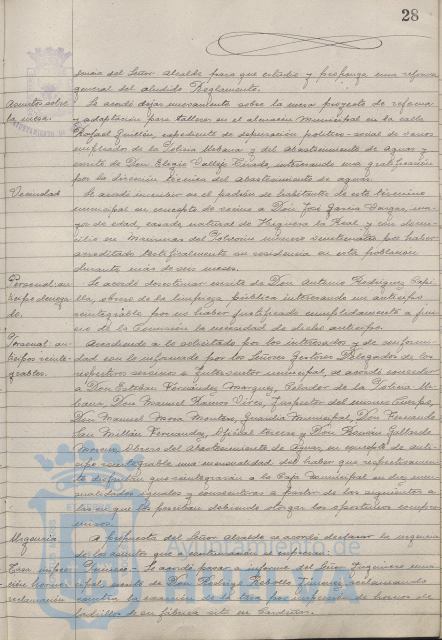 28
dencia del Señor Alcalde para que estudie y proponga una reforma
general del aludido Reglamento.
Asuntos sobre la mesa.
Se acordó dejar nuevamente sobre la mesa proyecto de reforma
y adaptación para talleres en el almacén municipal en la calle
Rafael Guillén, expediente de depuración político-social de varios
empleados de la Policía Urbana y del abastecimiento de aguas y
escrito de Don Elogio Vallejo Tirado interesando una gratificación
por la dirección técnica del abastecimiento de aguas.
Vecindad
Se acordó inscribir en el padrón de habitantes de este término
municipal en concepto de vecino a Don José García Vargas, ma-
yor de edad, casado natural de Higuera la Real y con domi-
cilio en Marismas del Polvorín número veinticuatro por haber
acreditado testificalmente su residencia en esta población
durante más de seis meses.
Personal: an-
ticipo denega-
do.
Se acordó desestimar escrito de Don Antonio Rodríguez Capi-
lla, obrero de la limpieza pública interesando un anticipo
reintegrable por no haber justificado cumplidamente a jui-
cio de la Comisión la necesidad de dicho anticipo.
Personal: an-
ticipos reinte-
grables.
Accediendo a lo solicitado por los interesados y de conformi-
dad con lo informado por los Señores Gestores Delegados de los
respectivos servicios e Interventor municipal, se acordó conceder
a Don Esteban Fernández Márquez, Celador de la Policía Ur-
bana, Don Manuel Ramos Vives, Inspector del mismo Cuerpo,
Don Manuel Mora Montero, Guardia Municipal, Don Fernando
San Millán Fernández, Oficial tercero y Don Fermín Gallardo
Moreno Obrero del Abastecimiento de Aguas, en concepto de anti-
cipo reintegrable una mensualidad del haber que respectivamen-
te disfrutan que reintegrarán a la Caja Municipal en diez men-
sualidades iguales y consecutivas a partir de los siguientes a
las en que los perciban debiendo otorgar los oportunos compro-
misos.
Urgencia.
A propuesta del Señor Alcalde se acordó declarar la urgencia
de los asuntos que a continuación se expresan:
Se acordó pasar a informe del Señor Ingeniero muni-
cipal, escrito de Don Rodrigo Rebollo Jiménez, reclamando
contra la exacción de la tasa por inspección de hornos de
ladrillos de su fábrica sita en Cardeñas.
Ayuntamiento de
HUELVA